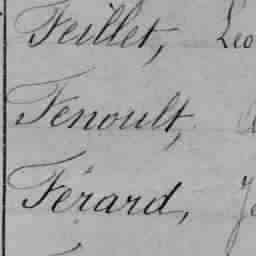 Feillet, Leo
Fenoult,
Férard,